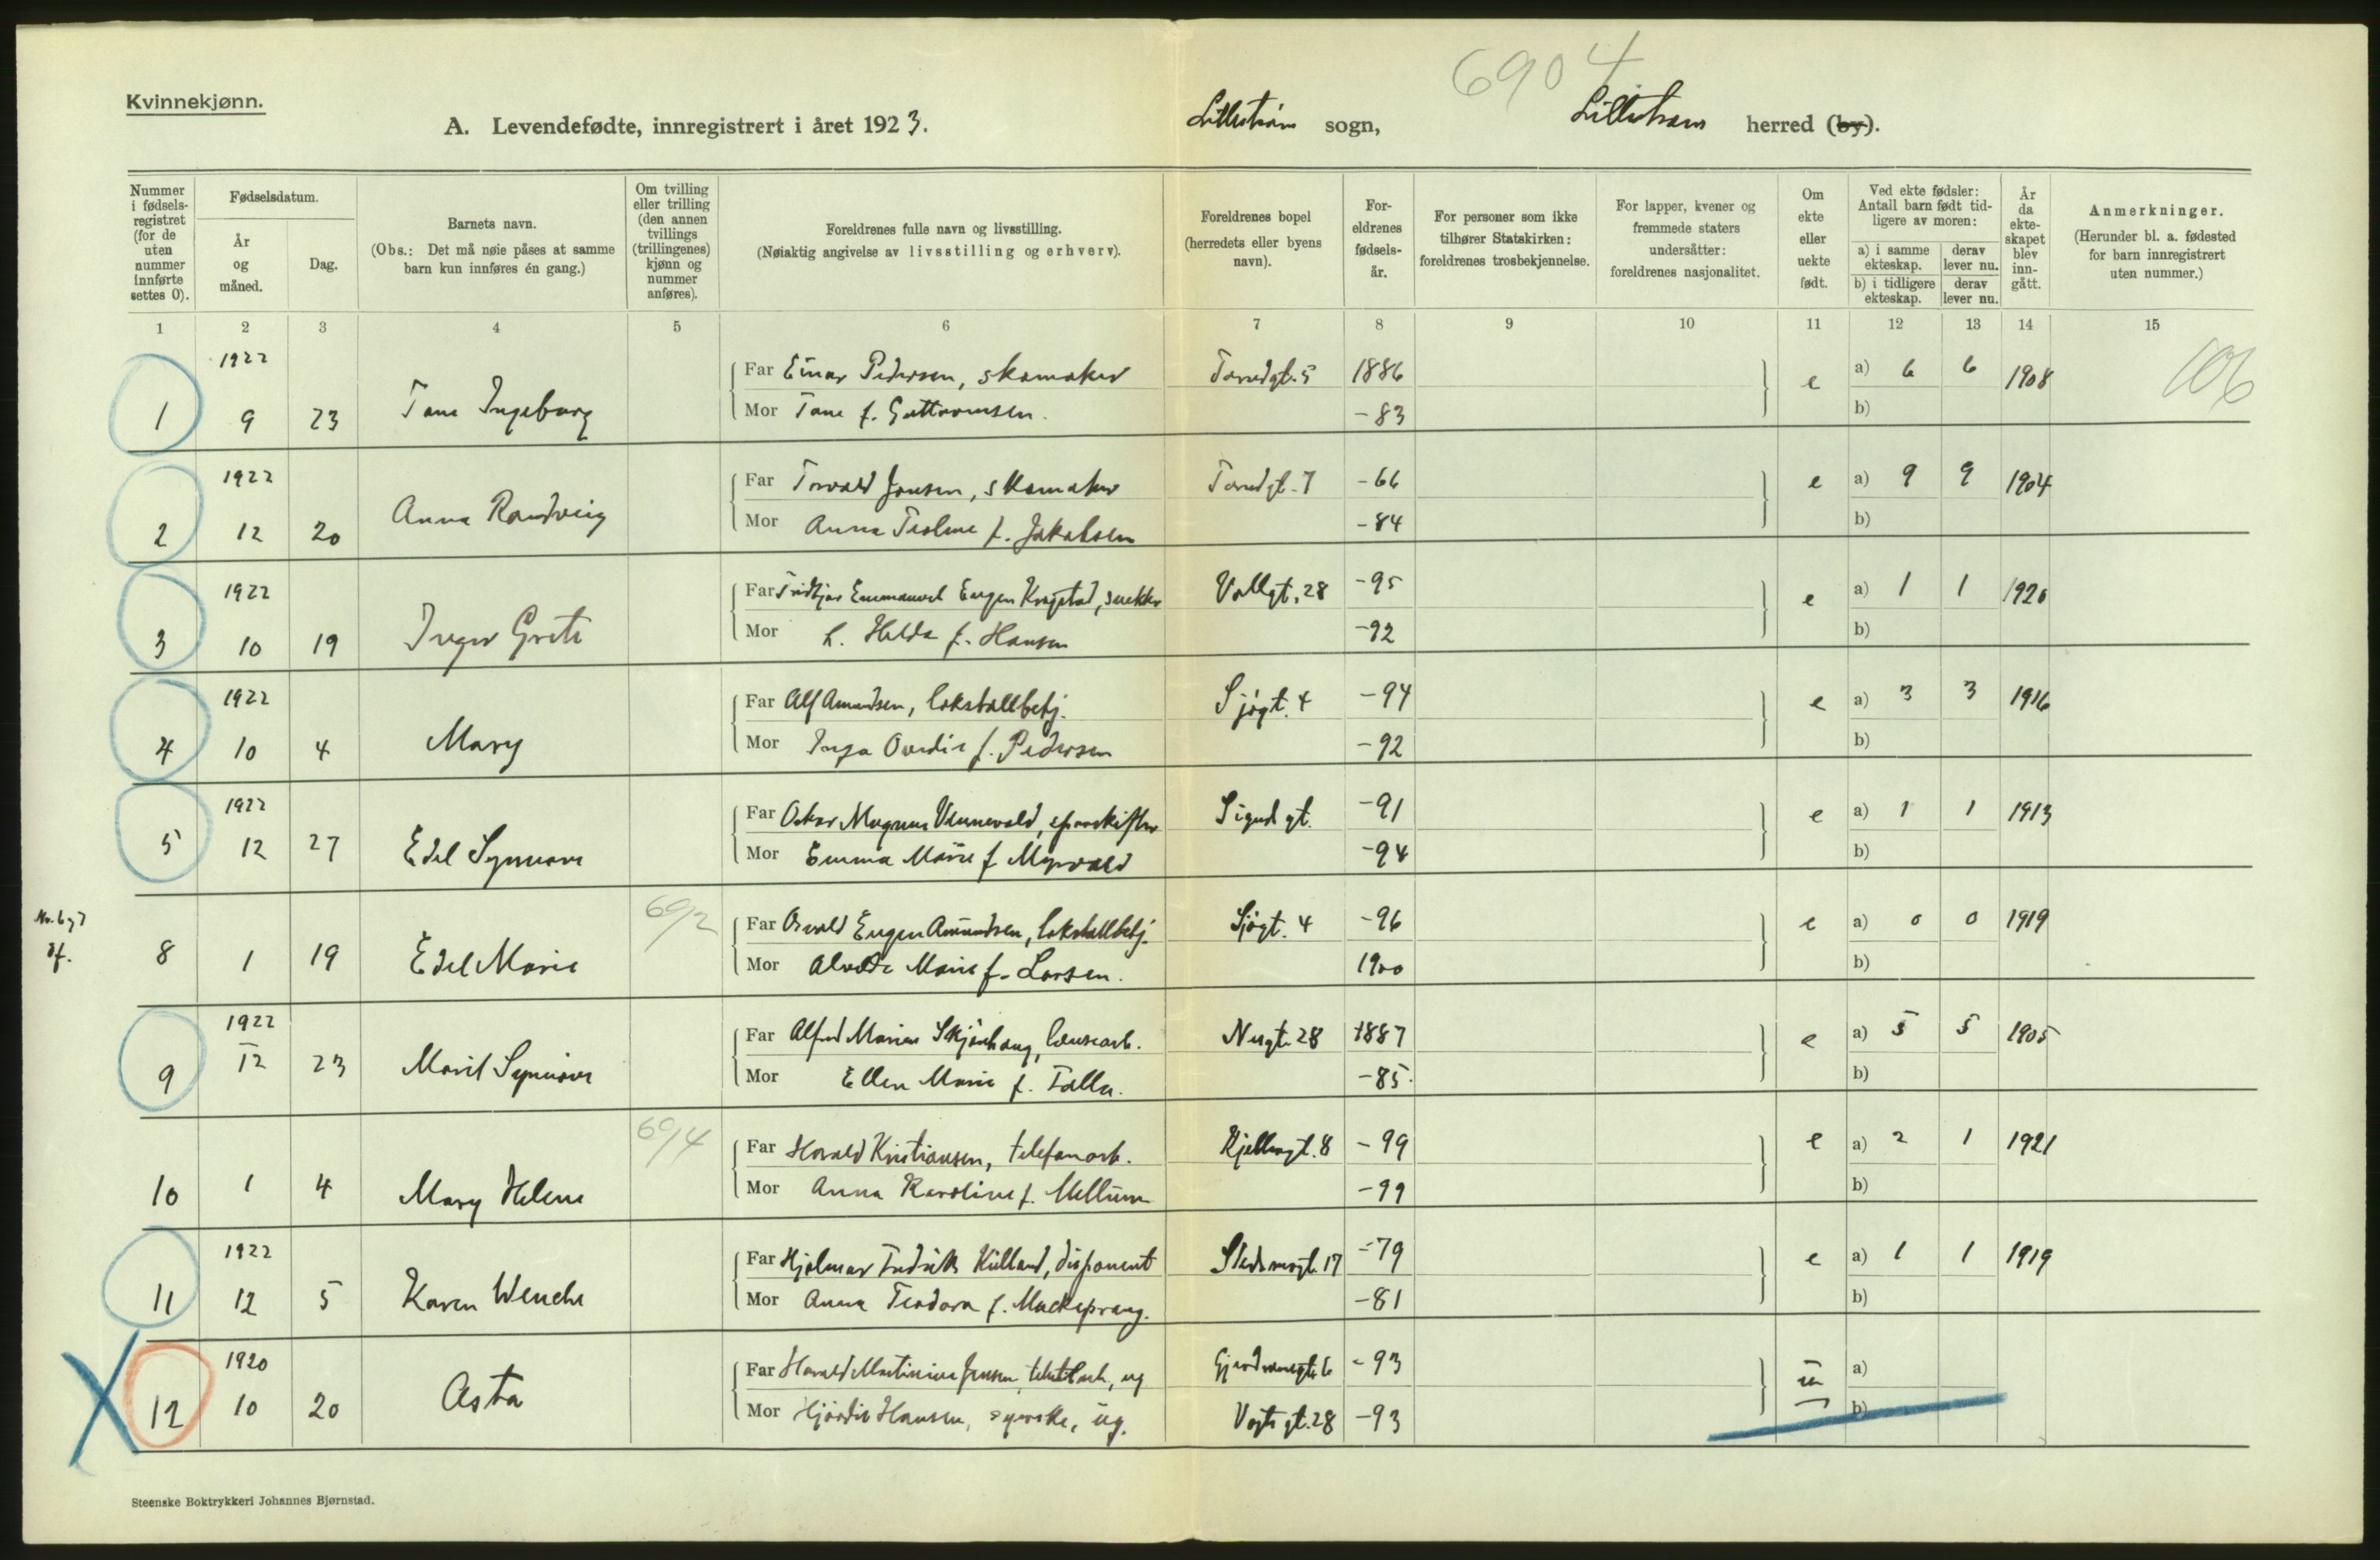 Kvinnekjønn.
6904
A. Levendefødte, innregistrert i året 1923. Lillestrøm sogn, Lillestrøm herred (by).
Nummer i fødsels-registret (for de uten nummer innførte settes 0).
Fødselsdatum.
År og måned.
Dag.
Barnets navn.
(Obs.: Det må nøie påses at samme barn kun innføres én gang.)
Om tvilling eller trilling (den annen tvillings (trillingenes) kjønn og nummer anføres).
Foreldrenes fulle navn og livsstilling.
(Nøiaktig angivelse av livsstilling og erhverv).
Foreldrenes bopel (herredets eller byens navn).
For-eldrenes fødsels-år.
For personer som ikke tilhører Statskirken: foreldrenes trosbekjennelse.
For lapper, kvener og fremmede staters undersåtter: foreldrenes nasjonalitet.
Om ekte eller uekte født.
Ved ekte fødsler: Antall barn født tid-ligere av moren:
a) i samme ekteskap.
derav lever nu.
b) i tidligere ekteskap.
derav lever nu.
År da ekte-skapet blev inn-gått.
Anmerkninger.
(Herunder bl. a. fødested for barn innregistrert uten nummer.)
1 2 3 4 5 6 7 8 9 10 11 12 13 14 15
106
1922 Far Einar Pedersen, skomaker 1886 e a) 6 6 1908
1 9 23 Ingeborg Mor f. Guttormsen. -83 b)
1922 Far Torvald Jensen, skomaker -66 e a) 9 9 1904
2 12 20 Anna Randveig Mor Anna f. Jakobsen -84 b)
1922 Far Fridtjov Emmanuel Eugen Krogstad, snekker Vollgt. 28 -95 e a) 1 1 1920
3 10 19 Inger Grete Mor h. Hilda f. Hansen -92 b)
1922 Far Alf Amundsen, lokstallbetj. Sjøgt. 4 -94 e a) 3 3 1916
4 10 4 Mary Mor Inga f. Pedersen -92 b)
1922 Far Oskar Magnus Vennevold, sporskifter Sigurd gt. -91 e a) 1 1 1913
5 12 27 Edel Synnøve Mor Emma Marie f. Myrvold -94 b)
69/2
Nr. 6 og 7 df.
Far Osvald Eugen Amundsen, lokstallbetj. Sjøgt. 4 -96 e a) 0 0 1919
8 1 19 Edel Marie Mor Alvilde Marie f. Larsen. 1900 b)
1922 Far Alfred Marius Skjønhaug, lensearb. Nergt. 28 1887 e a) 5 5 1905
9 12 23 Marit Synnøve Mor Ellen Marie f. Falla. -85. b)
69/4
Far Harald Kristiansen, telefonarb. Kjellergt. 8 -99 e a) 2 1 1921
10 1 4 Mary Helene Mor Anna Karoline f. Mellum -99 b)
1922 Far Hjalmar Fredrik Kielland, disponent 17 -79 e a) 1 1 1919
11 12 5 Karen Wenche Mor Anna Teodora f. Mackeprang. -81 b)
1920 Far Harald Martinius Jensen, ug -93 u a)
12 10 20 Asta Mor Hjørdis Hansen, syerske, ug. Vogts gt. 28 -93 b)
Steenske Boktrykkeri Johannes Bjørnstad.